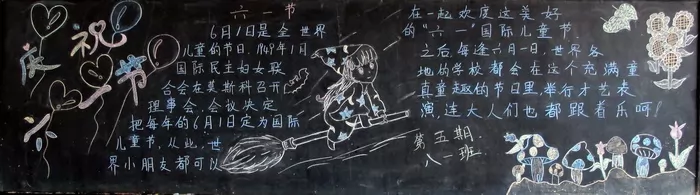 庆祝
节
六一节
6月1日是全世界
儿童的节日,1949年1月
国际民主妇女联
合会在莫斯科召开
理事会,会议决定
把每年的6月1日定为国际
儿童节,从此,世
界小朋友都可以
在一起欢度这美好
的“六一”国际儿童节.
之后每逢六月一日,世界各
地的学校都会在这个充满童
真童趣的节日里,举行才艺表
演,连大人们也都跟着乐呵!
第五期
八一班